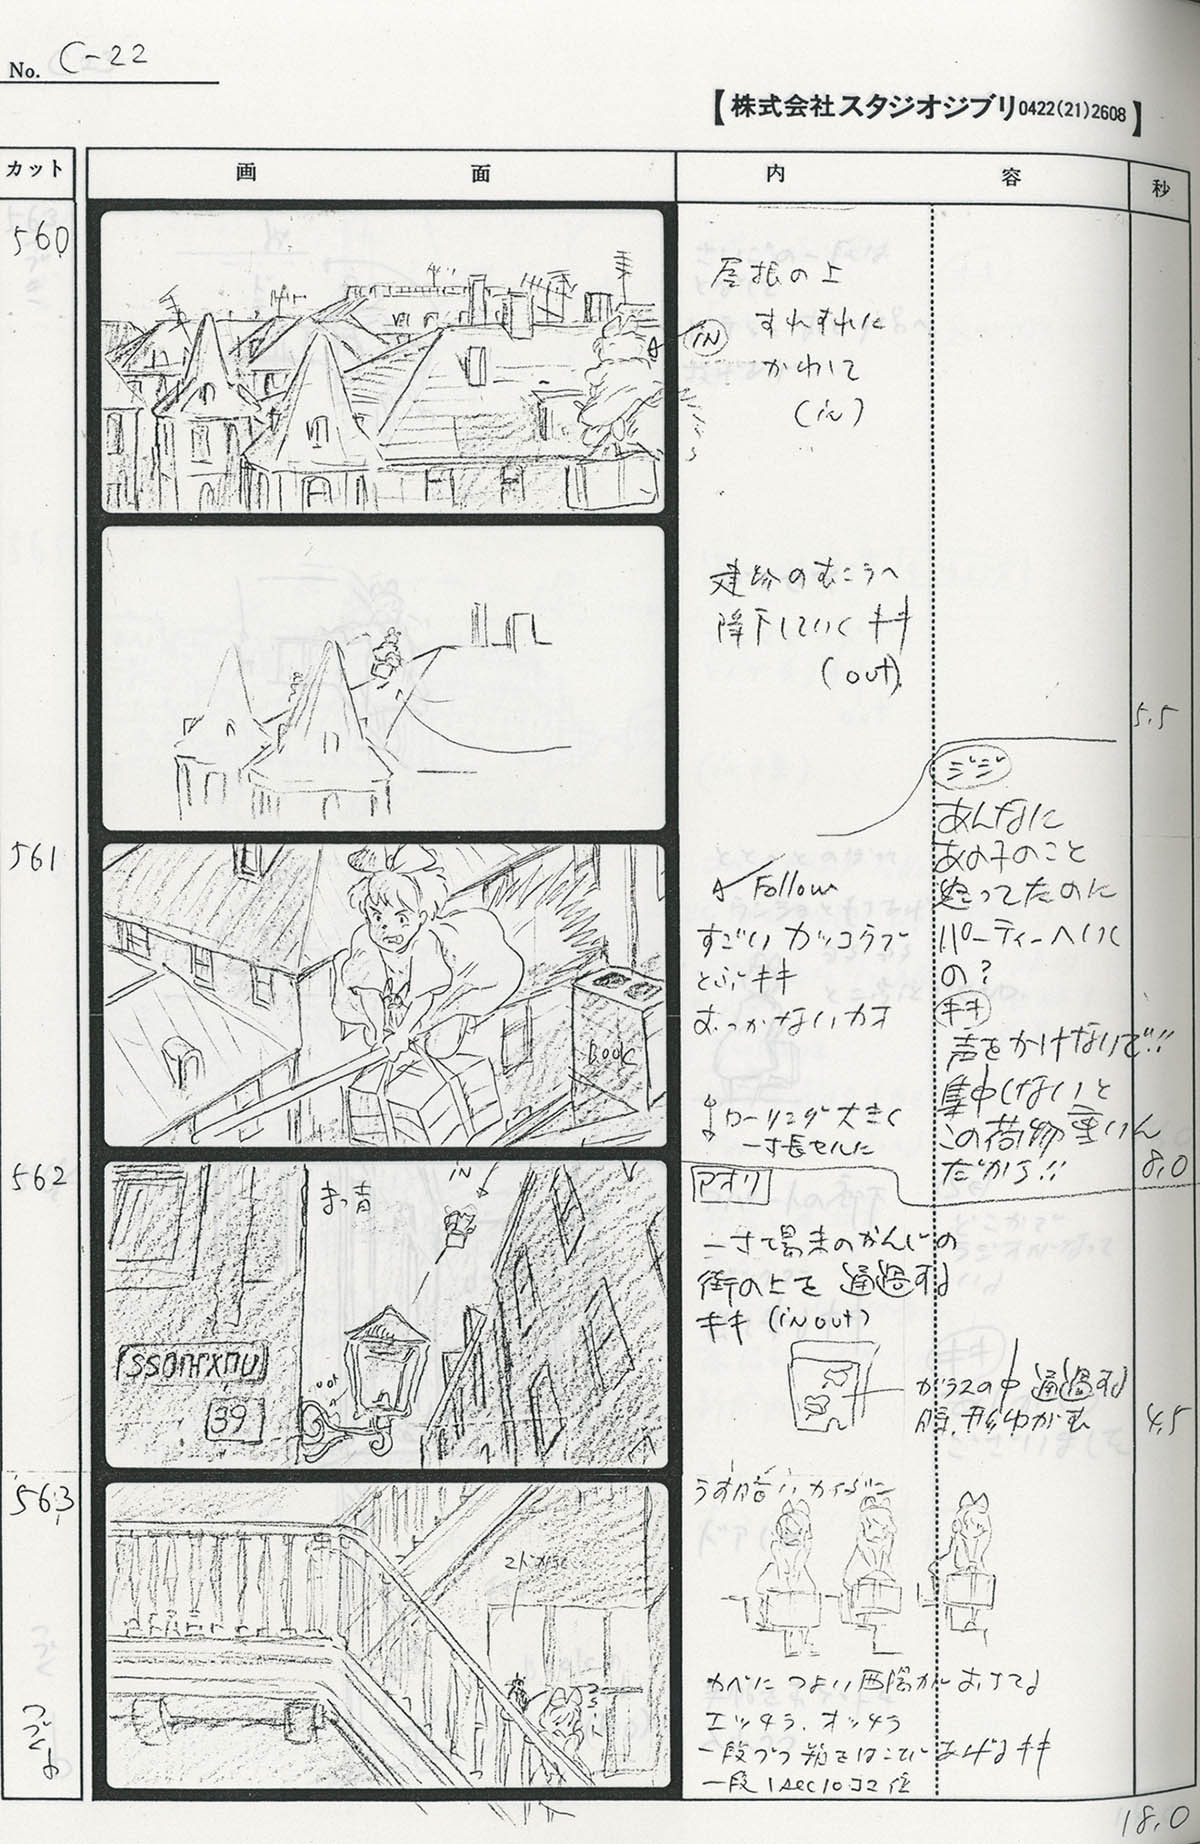 No. C-22
【株式会社スタジオジブリ0422(21)2608】
カット
画面
内容
秒
560
in
屋根の上
すれすれに
かわして
(in)
建物のむこうへ
降下していくキキ
(out)
5.5
561
BOOC
Follow
すごいカッコウで
とぶキキ
おっかないカオ
ローリング大きく
一寸長セルに
ジジ
あんなに
あの子のこと
怒ってたのに
パーティーへいく
の?
キキ
声をかけないで!!
集中しないと
この荷物重いん
だから!!
8.0
562
まっ青
IN
out
39
アオリ
一寸て場末のかんじの
街の上を通過する
キキ (in out)
ガラスの中通過する
時、形ゆがむ
4.5
563
つづく
うす暗いカイダン
カベにつよい西陽があたってる
エッチラ、オッチラ
一段づつ箱をはこびあげるキキ
一段1sec10コマ位
18.0